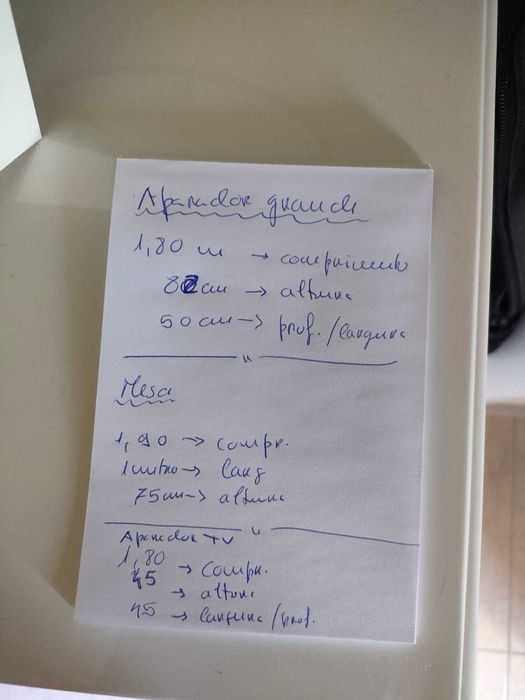 Aparador grande
1,80 m → comprimento
82cm → altura
50 cm → prof. / largura
Mesa
1,90 → compr.
1 metro → larg
75cm → altura
Aparador TV
1,80
45 → compr.
→ altura
45 → largura / prof.